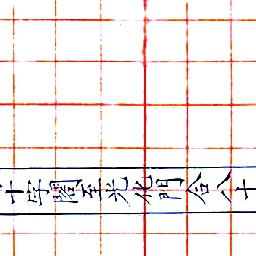 十字閣至光化門合八十